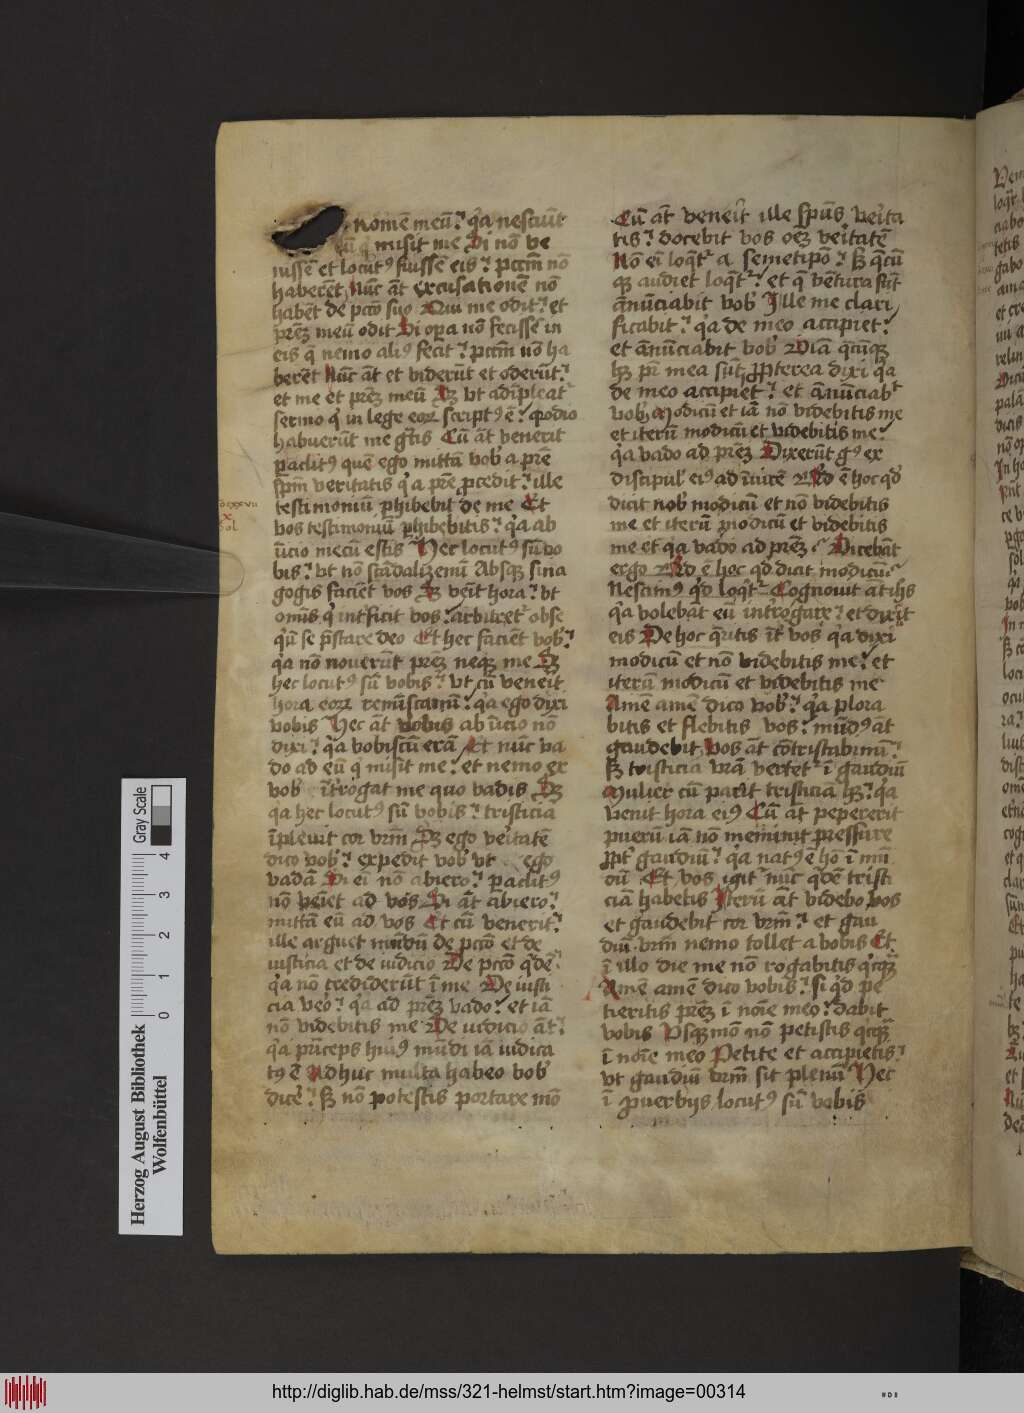 nomē meū? q̇a nesciūt
misit me Si nō ve
nissē et locut⁹ fuissē eis? pctm̄ nō
haberēt Nūc āt excusationē nō
habēt de pctō suo Qui me odit? et
prēȝ meū odit Si opa nō fecissē in
eis q̄ nemo ali⁹ fecit? pctm̄ nō ha
berēt Nūc āt et viderūt et oderūt?
et me et prēȝ meū Sȝ vt adīpleat᷑
sermo q̇ in lege eoꝝ script⁹ ē? Quodio
habuerūt me gᵗis Cū āt venerit
paclit⁹ quē ego mittā vob᷒ a prē
sp̄m veritatis q̇ a prē ꝓcedit? ille
testimoniū ꝑhibebit de me Et
vos testimoniū ꝑhibebitis? q̇a ab
īicio mecū estis Hec locut⁹ sū vo
bis? vt nō scādalizemī Absqꝫ sina
gogis faciēt vos Sȝ veīt hora? vt
omīs q̇ int᷑ficit vos? arbitret᷑ obse
q̇ū se p̄stare deo Et hec faciēt vob᷒?
q̇a nō noverūt prēȝ neqꝫ me Sȝ
hec locut⁹ sū vobis? vt cū veneit
hora eoꝝ remīscamī? q̇a ego dixi
vobis Hec āt vobis ab īicio nō
dixi? q̇a vobiscū erā Et nūc va
do ad eū q̇ misit me? et nemo ex
vob᷒ īt᷑rogat me quo vadis Sȝ
q̇a hec locut⁹ sū vobis? tristicia
īplevit cor vrm̄ Sȝ ego veītatē
dico vob᷒? expedit vob᷒ vt ego
vadā Si eī nō abiero? paclit⁹
nō veīet ad vos Si āt abiero?
mittā eū ad vos Et cū venerit?
ille arguet mūdū de pctō et de
iusticia et de iudicio De pctō q̇dē?
q̇a nō crediderūt ī me De iusti
cia veo? q̇a ad prēȝ vado? et iā
nō videbitis me De iudicio āt?
q̇a prīceps hui⁹ mūdi iā iudica
t⁹ ē Adhuc multa habeo vob᷒
dicē? Sȝ nō potestis portare mō
Cū āt veneīt ille sp̄us veīta
tis? docebit vos oēȝ veītatē
Nō eī loq̇t᷑ a semetipō? sȝ q̄cū
qꝫ audiet loq̇t᷑? et q̄ vētura sūt
ānūciabit vob᷒ Ille me clari
ficabit? q̇a de meo accipiet?
et ānūciabit vob᷒ Oīa q̄cūqꝫ
hȝ pr̄ mea sūt ꝓpterea dixi q̇a
de meo accipiet? et ānūciab᷑t
vob᷒ Modicū et iā nō videbitis me
et iterū modicū et videbitis me?
q̇a vado ad prēȝ Dixerūt g⁹ ex
discipul᷒ ei⁹ ad īvicē Qd ē hoc qd̓
dicit nob᷒ modicū et nō videbitis
me et iterū modicū et videbitis
me et q̇a vado ad prēȝ? Dicebāt
ergo Qd ē hoc qd̓ dicit modicū?
Nescim⁹ qd̓ loq̇t᷑ Cognovit āt ihs
q̇a volebāt eū int᷑rogare? et dixit
eis De hoc q̄ritis īt᷑ vos q̇a dixi
modicū et nō videbitis me? et
iterū modicū et videbitis me
Amē amē dico vob᷒? q̇a plora
bitis et flebitis vos? mūd⁹ āt
gaudebit Vos āt cōtristabimī?
sȝ tristicia vrā vertet᷑ ī gaudiū
Mulier cū parīt tristiciā hȝ? q̇a
venit hora ei⁹ Cū āt pepererit
puerū iā nō meminit pressure
ꝓpt᷑ gaudiū? q̇a nat⁹ ē hō ī mū
dū Et vos igit᷑ nūc q̇dē tristi
ciā habetis Iterū āt videbo vos
et gaudebit cor vrm̄? et gau
diū vrm̄ nemo tollet a vobis Et
ī illo die me nō rogabitis q̇cqȝ
Amē amē dico vobis? si q̇d pe
tieritis prēȝ ī noīe meo? dabit
vobis Vsqꝫ mō nō petistis q̇cqȝ
ī noīe meo Petite et accipietis?
vt gaudiū vrm̄ sit plenū Hec
ī ꝓverbijs locut⁹ sū vobis
Gray Scale
0 1 2 3 4
Herzog August Bibliothek
Wolfenbüttel
http://diglib.hab.de/mss/321-helmst/start.htm?image=00314